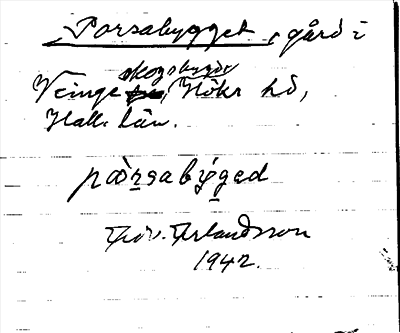 Porsabygget, gård i
Veinge skogsbygd, Höks hd,
Hall. län.
pàrsabýged
Erlandsson
1942.